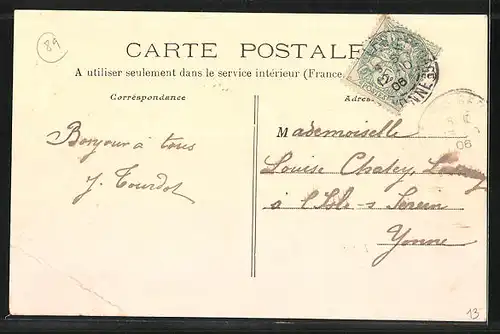 89
CARTE POSTALE
A utiliser seulement dans le service intérieur (France,
Correspondance
Adres
Mademoiselle
Bonjour à tous
Louise
J. Tourdot
à l'Isle-s Serein
Yonne
YONNE
08
06
13